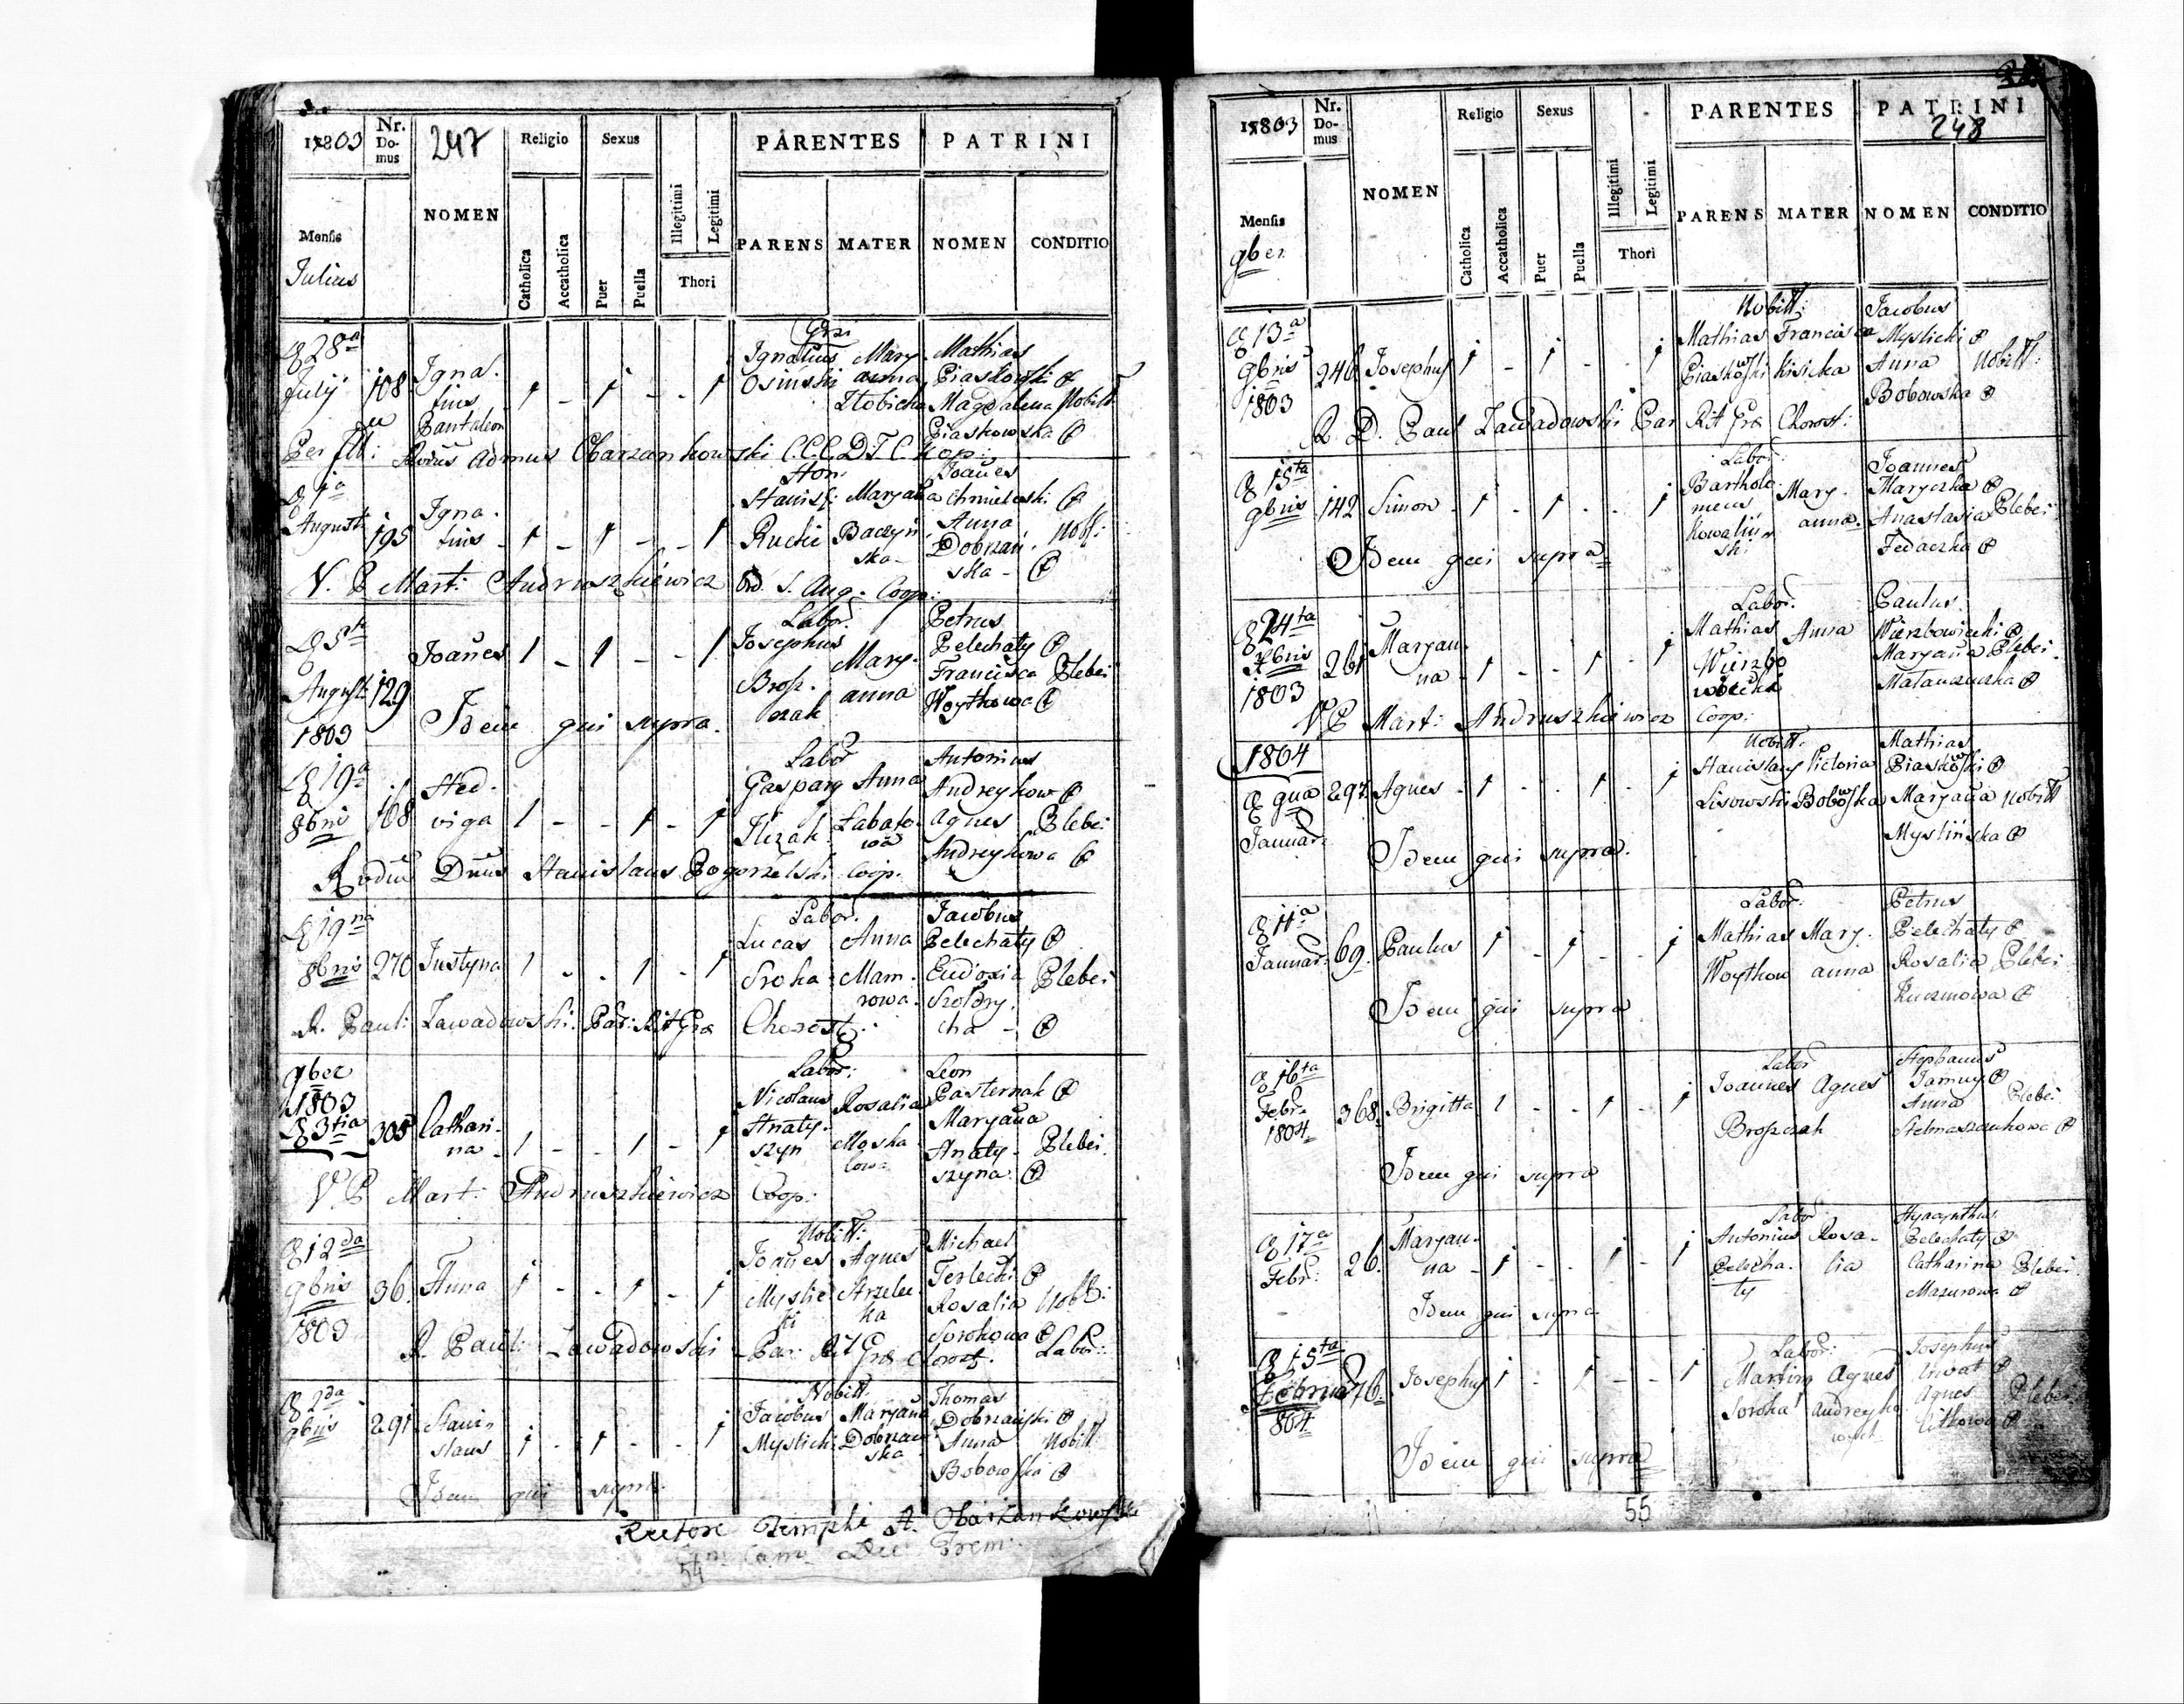 1803
Nr. Domus
247
NOMEN
Religio
Sexus
PARENTES
PATRINI
Mensis
Julius
Catholica
Accatholica
Puer
Puella
Illegitimi
Legitimi
Thori
PARENS
MATER
NOMEN
CONDITIO
28va July 108 Ignatius Pantaleon 1 - 1 - - 1
Ignatius Osiński
Maryanna
Mathias Piaskowski
Magdalena Piaskowska
Nobill:
Per Ill: Rndus Admus Obarzankowski C.C.C.D.T.C. Kop:
1a Augusti 195 Ignatius 1 - 1 - - 1
Hon:
Stanisl: Rucki
Maryana Baczyńska
Joanes Chmielewski
Anna Dobrzańska
Nobl:
V. P. Mart: Andruszkiewicz Ord. S. Aug. Coop:
5ta Augusti 1803 129 Joanes 1 - 1 - - 1
Labor:
Josephus Broszczak
Maryanna
Petrus Pelechaty
Francisca Woytkowa
Plebei
Idem qui supra.
19a 8bris 108 Hedviga 1 - - 1 - 1
Labor
Gaspary
Anna Łabatowa
Antonius Andreykow
Agnes Andreykowa
Plebei
Rndus Dnus Stanislaus Pogorzelski Coop.
19na 8bris 270 Justyna 1 - - 1 - 1
Labor:
Lucas Sroka
Anna Mamrowa
Jacobus Pelechaty
Eudoxia Szołdrycha
Plebei
R. Paul: Zawadowski Par: Rit Gra Chorost:
9ber 1803 3tia 305 Catharina 1 - - 1 - 1
Labor:
Nicolaus Hnatyszyn
Rosalia Moskalowa
Leon Pasternak
Maryana Hnatyszyna
Plebei
V P Mart: Andruszkiewicz Coop:
12da 9bris 1803 36. Anna 1 - - 1 - 1
Nobill:
Joanes Myslicki
Agnes Strzelecka
Michael Terlecki
Rosalia Sorokowa
Nobl:
Labor:
R. Paul: Zawadowski Par: Rit Gra Chorost.
2da 9bris 291 Stanislaus 1 - 1 - - 1
Nobill:
Jacobus Myslicki
Maryana Dobrzańska
Thomas Dobrzański
Anna Bobowska
Nobill
Idem qui supra.
Rectore Templi A. Obarzankowski
54
1803
Nr. Domus
NOMEN
Religio
Sexus
PARENTES
PATRINI
248
Mensis
9ber
Catholica
Accatholica
Puer
Puella
Illegitimi
Legitimi
Thori
PARENS
MATER
NOMEN
CONDITIO
13a 9bris 1803 246 Josephus 1 - 1 - - 1
Nobill:
Mathias Piaskowski
Francisca Kisicka
Jacobus Myslicki
Anna Bobowska
Nobill:
R. D. Paul Zawadowski Par Rit Gra Chorost:
15ta 9bris 142 Simon 1 - 1 - - 1
Labor:
Bartholomeus
Maryanna.
Joannes Maryczka
Anastasia Fedaczka
Plebei
Idem qui supra
24ta Xbris 1803 261 Maryanna 1 - - 1 - 1
Labor.
Mathias
Anna
Paulus Wierzbowiecki
Maryana
Plebei
V P Mart: Andruszkiewicz Coop:
1804
Januar: 297 Agnes 1 - - 1 - 1
Nobill:
Stanislaus Lisowski
Victoria Bobowska
Mathias Piaskowski
Maryana Myslińska
Nobill
Idem qui supra.
11a Januar: 69. Paulus 1 - 1 - - 1
Labor:
Mathias Woytkow
Maryanna
Petrus Pelechaty
Rosalia Kuczmowa
Plebei
Idem qui supra
16ta Febr: 1804 368. Brigitta 1 - - 1 - 1
Labor
Joannes Broszczak
Agnes
Stephanus
Anna Stelmaszczukowa
Plebei
Idem qui supra
17a Febr: 26. Maryanna 1 - - 1 - 1
Labor
Antonius Pelechaty
Rosalia
Hyacynthus Pelechaty
Catharina Mazurowa
Plebei
Idem qui supra
15ta 804 Josephus 1 - 1 - - 1
Labor:
Martin Soroka
Agnes
Josephus
Agnes
Plebei
Idem qui supra
55